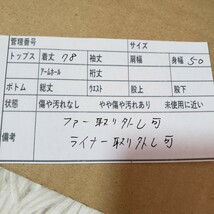 管理番号 サイズ
トップス 着丈 78 袖丈 肩幅 身幅 50
アームホール 裄丈
ボトム 総丈 ウエスト 股上 股下
状態 傷や汚れなし やや傷や汚れあり 未使用に近い
備考 ファー取り外し可
ライナー取り外し可